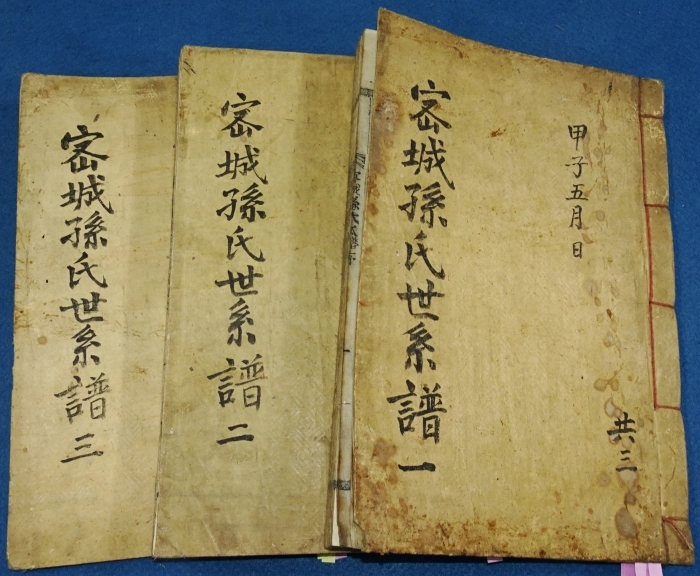 甲子五月日
共三
密城孫氏世系譜 一
密城孫氏世系譜 二
密城孫氏世系譜 三